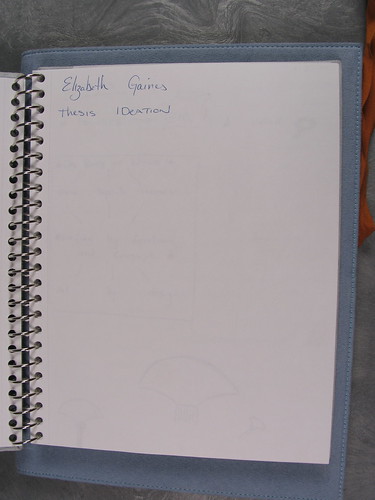 Elizabeth Gaines
THESIS IDEATION